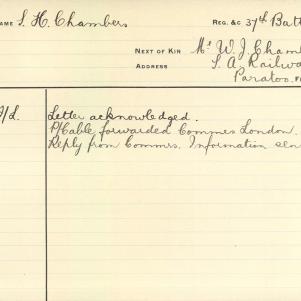 NAME S. H. Chambers REG. &C 37th Batt
NEXT OF KIN Mr W. J. Cham
ADDRESS S. A. Railwa
Paratoo.
/L. Letter acknowledged.
P/Cable forwarded Commrs London.
Reply from Commrs. Information sen